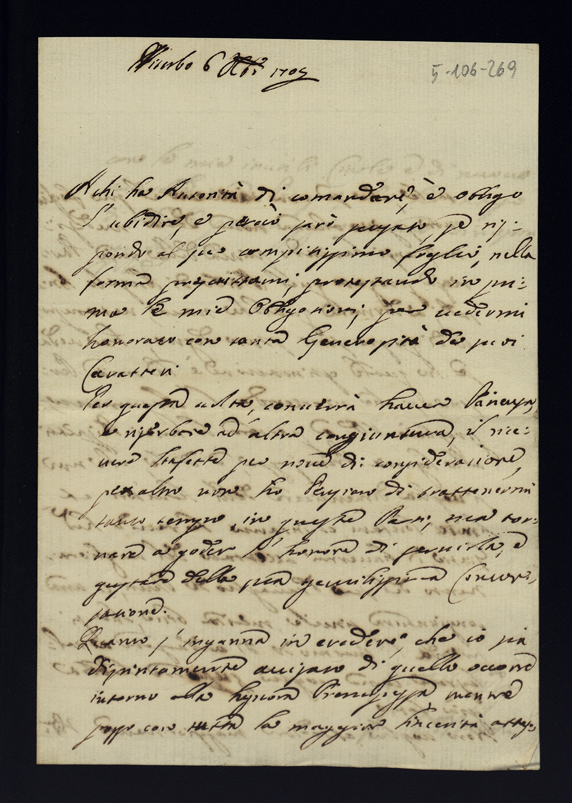 Viterbo 6 Xbre 1705
5-106-269
A chi ha Autorità di comandare, è obligo
l'ubidire, e perciò sarò scusato se ris-
pondo al suo compitissimo foglio, nella
forma prescrittami, protestando in pri-
ma le mie Obligationi, per vedermi
honorato con tanta Generosità de suoi
Caratteri
Per questa volta, converrà havere Patienza,
e riserbare ad altra congiuntura, il rice-
vere staffetta per nove di consideratione,
peraltro non ho Pensiero di trattenermi
tanto tempo, in queste Parti, ma tor-
nare a goder l'honore di servirla, e
gustare della sua gentilissima Conver-
satione.
Quanto s'inganna in credere, che io sia
distintamente avvisato di quello occorre
intorno alla Signora Principessa mentre
posso con tutta la maggior sincerità attes-